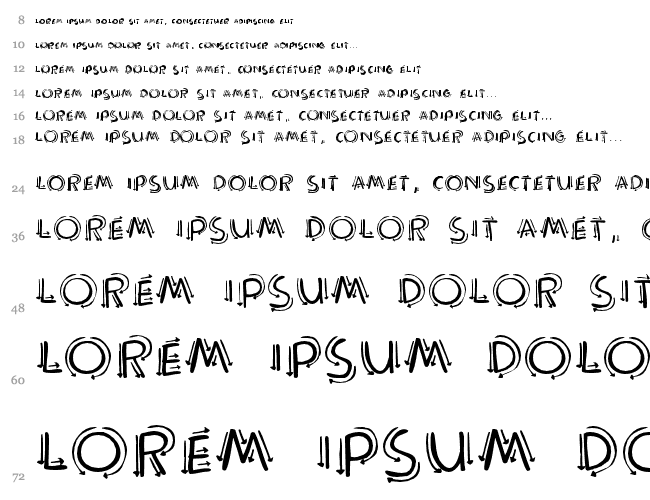 8 LOREM IPSUM DOLOR SIT AMET, CONSECTETUER ADIPISCING ELIT
10 LOREM IPSUM DOLOR SIT AMET, CONSECTETUER ADIPISCING ELIT...
12 LOREM IPSUM DOLOR SIT AMET, CONSECTETUER ADIPISCING ELIT
14 LOREM IPSUM DOLOR SIT AMET, CONSECTETUER ADIPISCING ELIT...
16 LOREM IPSUM DOLOR SIT AMET, CONSECTETUER ADIPISCING ELIT...
18 LOREM IPSUM DOLOR SIT AMET, CONSECTETUER ADIPISCING ELIT...
24 LOREM IPSUM DOLOR SIT AMET, CONSECTETUER ADI
36 LOREM IPSUM DOLOR SIT AMET, C
48 LOREM IPSUM DOLOR SIT
60 LOREM IPSUM DOLO
72 LOREM IPSUM DO